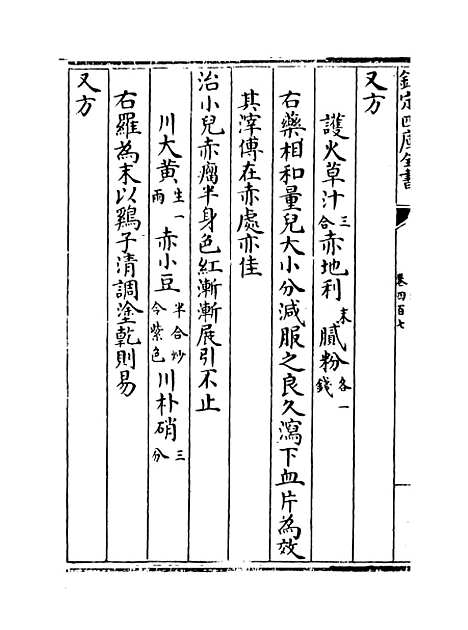 欽定四庫全書
卷四百七
又方
護火草汁三合赤地利末膩粉各一錢
右藥相和量兒大小分減服之良久瀉下血片為效
其滓傅在赤處亦佳
治小兒赤瘤半身色紅漸漸展引不止
川大黃生一兩赤小豆半合炒令紫色川朴硝三分
右羅為末以鷄子清調塗乾則易
又方